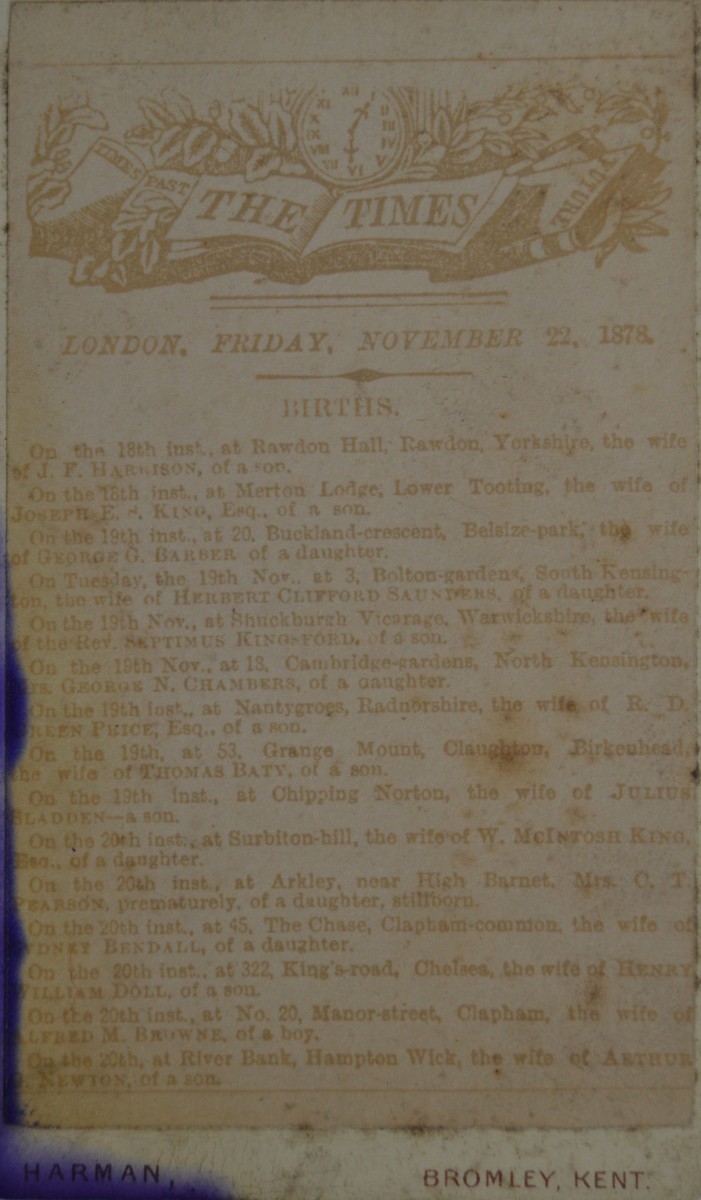 XII
XI
X
IX
VIII
VII
VI
V
IV
III
II
TIMES
PAST
THE TIMES
FUTURE
LONDON, FRIDAY, NOVEMBER 22, 1878.
BIRTHS.
On the 18th inst., at Rawdon Hall, Rawdon, Yorkshire, the wife
of J. F. HARRISON, of a son.
On the 18th inst., at Merton Lodge, Lower Tooting, the wife of
JOSEPH E. S. KING, Esq., of a son.
On the 19th inst., at 20, Buckland-crescent, Belsize-park, the wife
of GEORGE G. BARBER of a daughter.
On Tuesday, the 19th Nov., at 3, Bolton-gardens, South Kensing-
ton, the wife of HERBERT CLIFFORD SAUNDERS, of a daughter.
On the 19th Nov., at Shuckburgh Vicarage, Warwickshire, the wife
of the Rev. SEPTIMUS KINGSFORD, of a son.
On the 19th Nov., at 18, Cambridge-gardens, North Kensington,
Mrs. GEORGE N. CHAMBERS, of a daughter.
On the 19th inst., at Nantygroes, Radnorshire, the wife of R. D.
GREEN PRICE, Esq., of a son.
On the 19th, at 53, Grange Mount, Claughton, Birkenhead,
the wife of THOMAS BATY, of a son.
On the 19th inst., at Chipping Norton, the wife of JULIUS
SLADDEN—a son.
On the 20th inst., at Surbiton-hill, the wife of W. MCINTOSH KING,
Esq., of a daughter.
On the 20th inst., at Arkley, near High Barnet, Mrs. C. T.
PEARSON, prematurely, of a daughter, stillborn.
On the 20th inst., at 45, The Chase, Clapham-common, the wife of
SYDNEY BENDALL, of a daughter.
On the 20th inst., at 322, King's-road, Chelsea, the wife of HENRY
WILLIAM DOLL, of a son.
On the 20th inst., at No. 20, Manor-street, Clapham, the wife of
ALFRED M. BROWNE, of a boy.
On the 20th, at River Bank, Hampton Wick, the wife of ARTHUR
NEWTON, of a son.
HARMAN, BROMLEY, KENT.